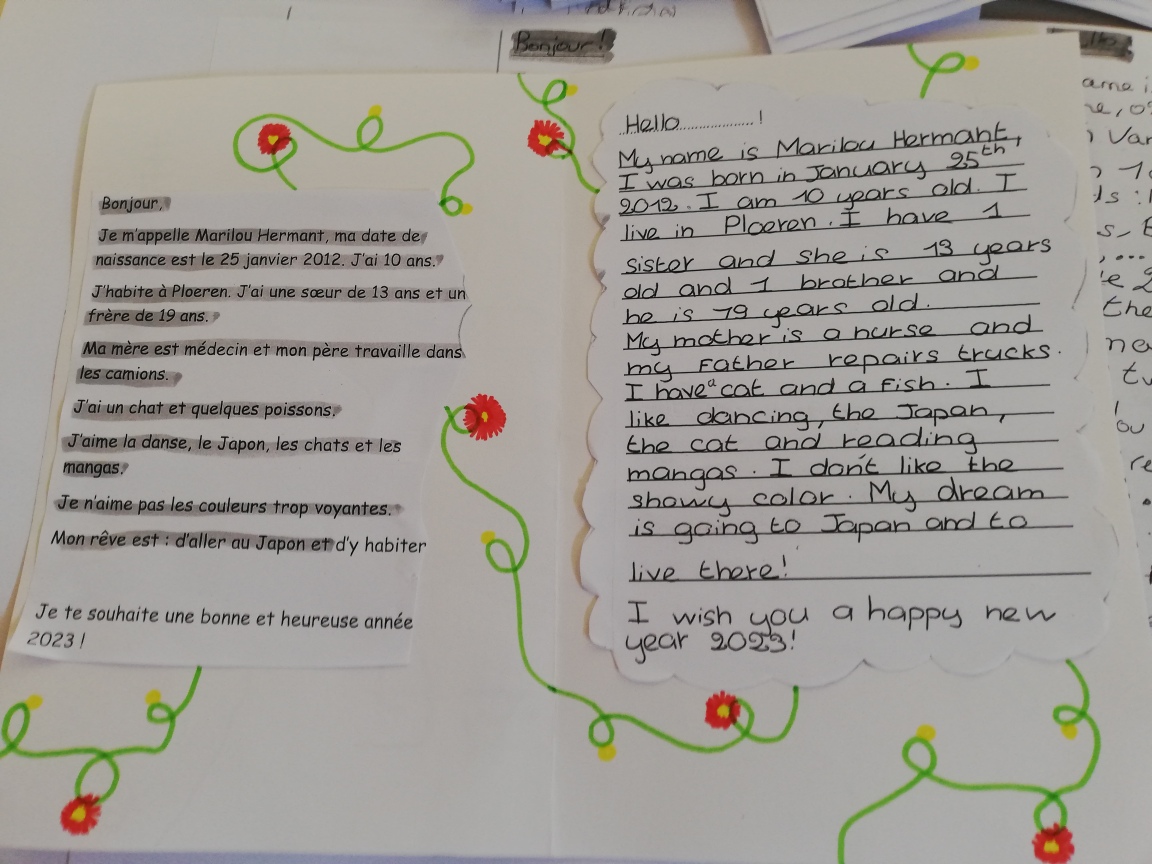 Bonjour!
Bonjour,
Je m'appelle Marilou Hermant, ma date de
naissance est le 25 janvier 2012. J'ai 10 ans.
J'habite à Ploeren. J'ai une sœur de 13 ans et un
frère de 19 ans.
Ma mère est médecin et mon père travaille dans
les camions.
J'ai un chat et quelques poissons.
J'aime la danse, le Japon, les chats et les
mangas.
Je n'aime pas les couleurs trop voyantes.
Mon rêve est : d'aller au Japon et d'y habiter
Je te souhaite une bonne et heureuse année
2023 !
Hello....................!
My name is Marilou Hermant,
I was born in January 25th
2012. I am 10 years old. I
live in Ploeren. I have 1
sister and she is 13 years
old and 1 brother and
he is 19 years old.
My mother is a nurse and
my Father repairs trucks.
I have a cat and a Fish. I
like dancing, the Japan,
the cat and reading
mangas. I don't like the
showy color. My dream
is going to Japan and to
live there!
I wish you a happy new
year 2023!
ame i
Var
the